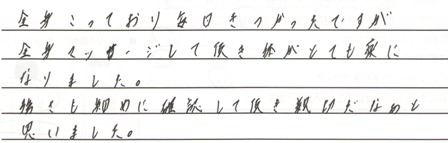 全身こっており毎日きつかったですが
全身マッサージして頂き体がとても楽に
なりました。
強さも細めに確認して頂き親切だなあと
思いました。